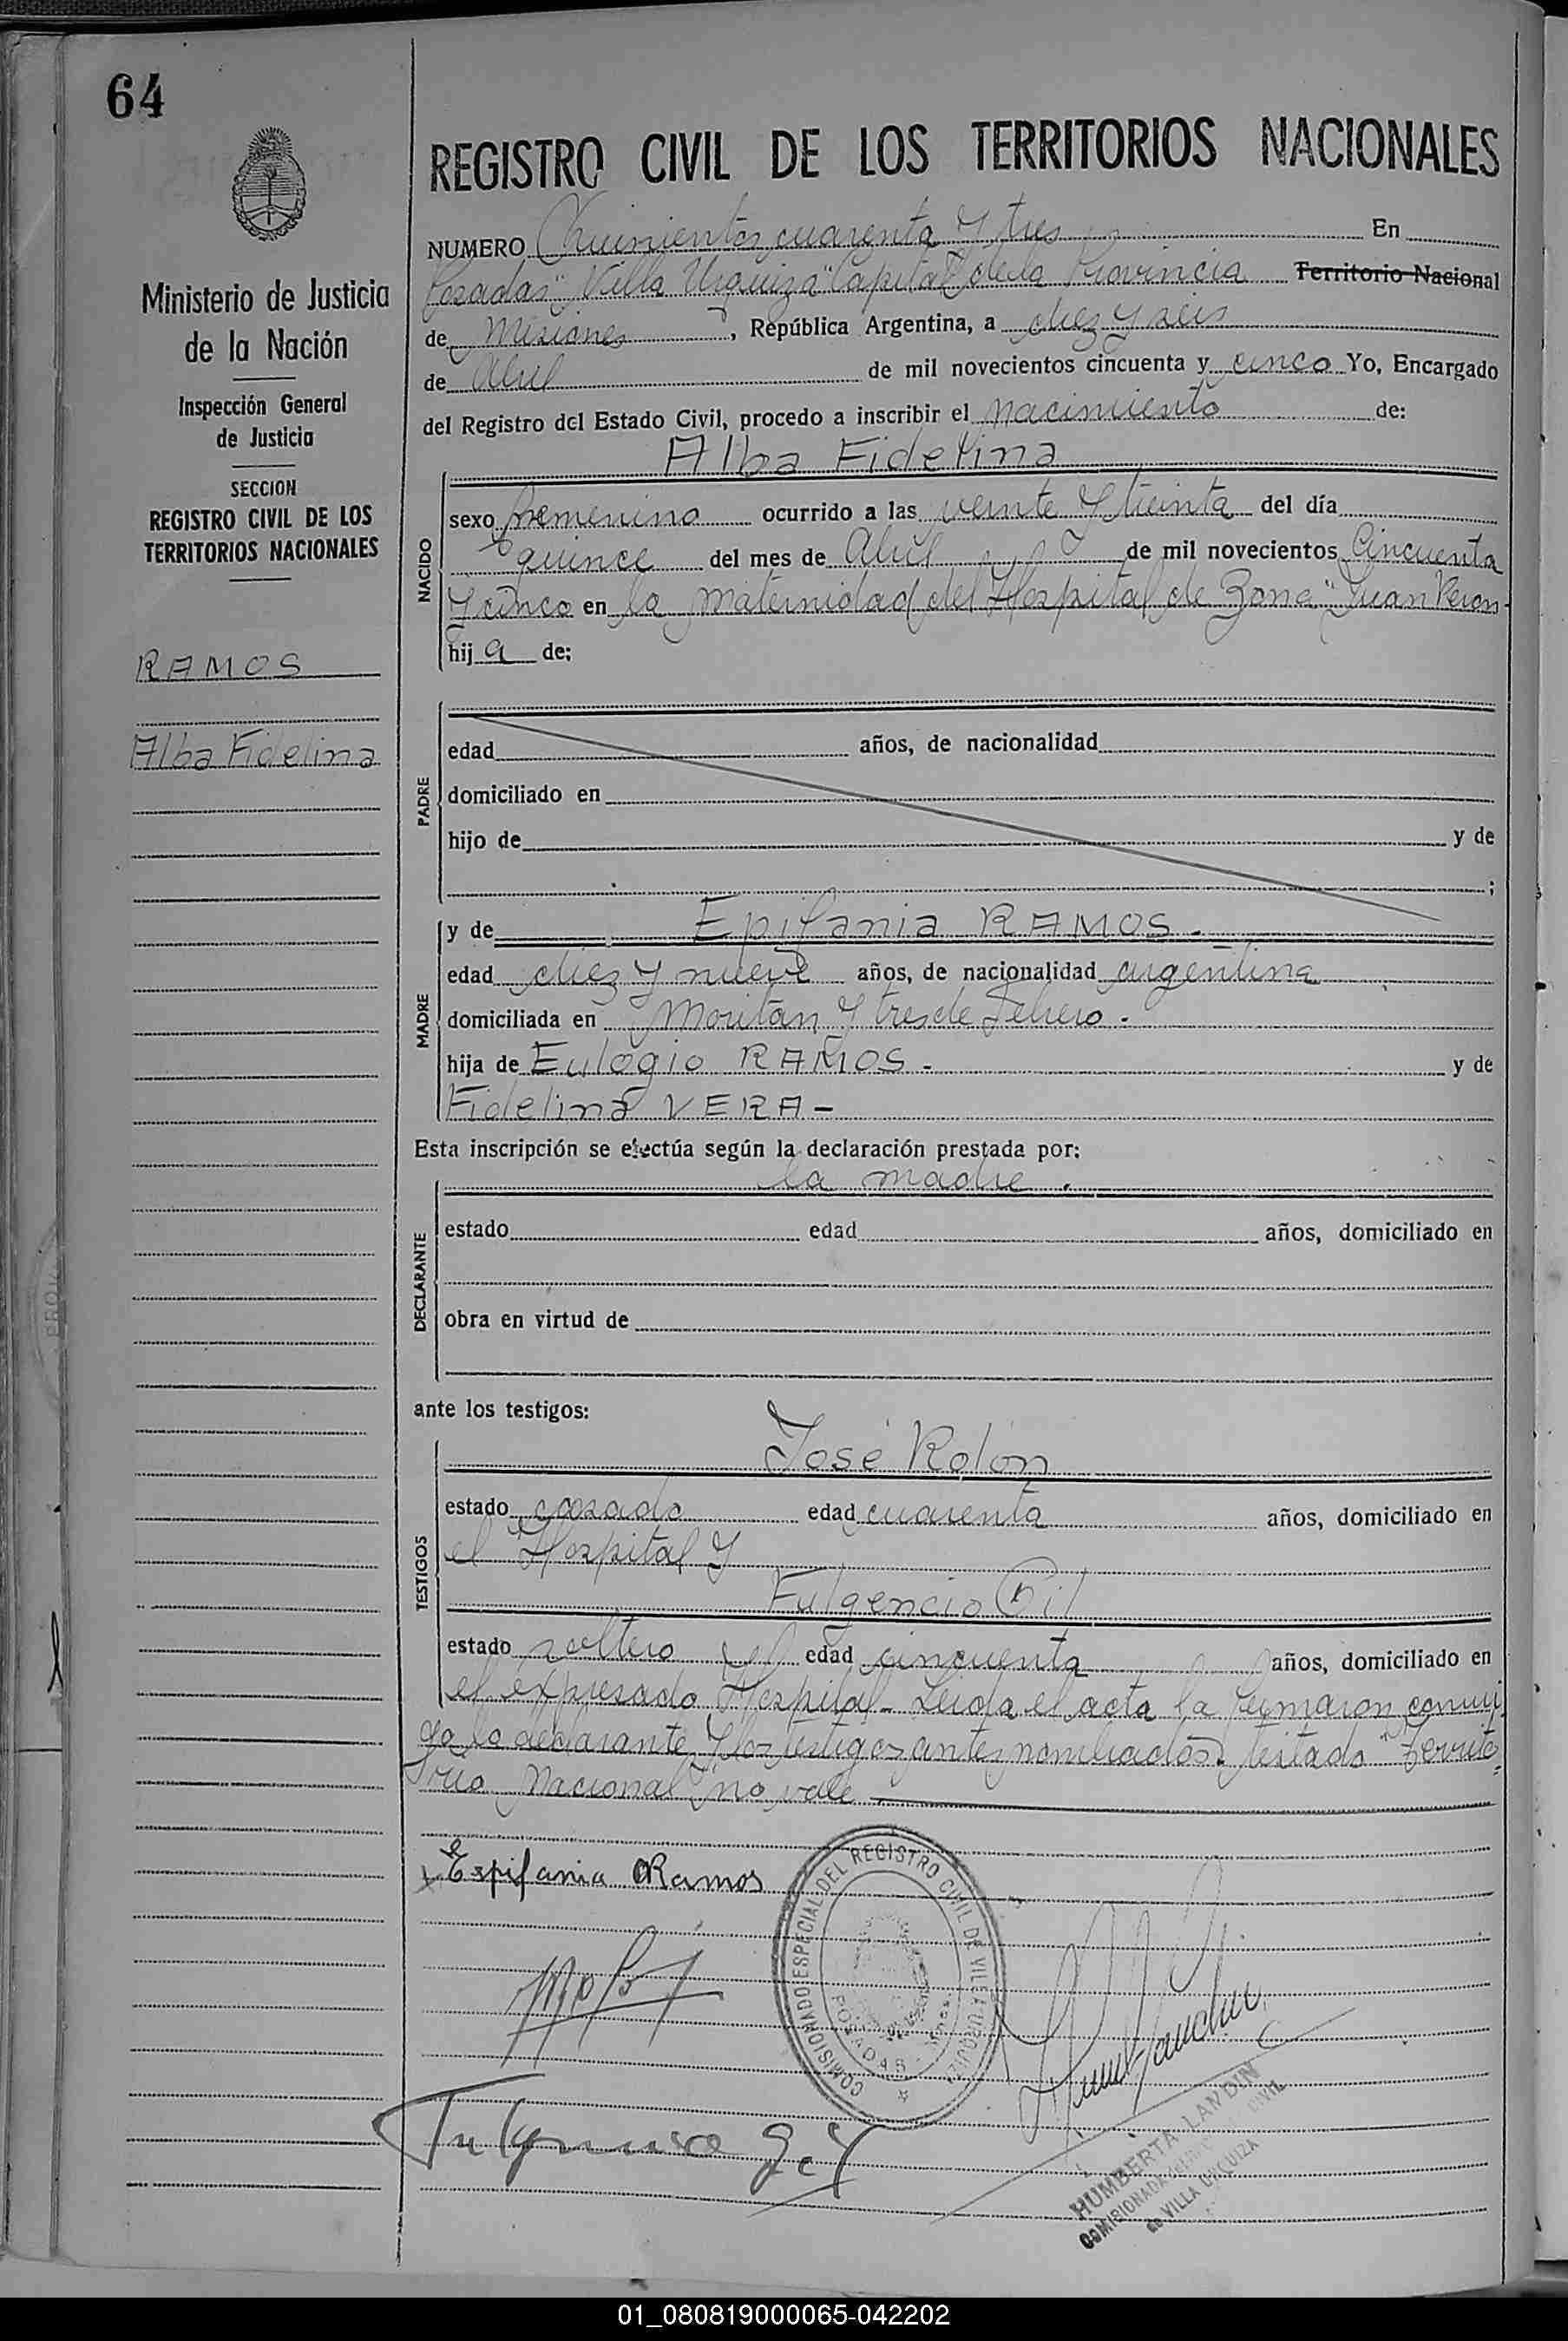 64
REGISTRO CIVIL DE LOS TERRITORIOS NACIONALES
NUMERO Quinientos cuarenta y tres En
Posadas "Villa Urquiza" Capital de la Provincia Territorio Nacional
de Misiones, República Argentina, a diez y seis
de Abril de mil novecientos cincuenta y cinco Yo, Encargado
del Registro del Estado Civil, procedo a inscribir el nacimiento de:
Alba Fidelina
Ministerio de Justicia
de la Nación
Inspección General
de Justicia
SECCION
REGISTRO CIVIL DE LOS
TERRITORIOS NACIONALES
RAMOS
Alba Fidelina
NACIDO
sexo femenino ocurrido a las veinte y treinta del día
quince del mes de Abril de mil novecientos Cincuenta
y cinco en la maternidad del Hospital de Zona "Juan Peron
hij a de:
PADRE
edad años, de nacionalidad
domiciliado en
hijo de y de
;
MADRE
y de Epifania RAMOS.
edad diez y nueve años, de nacionalidad argentina
domiciliada en Moritan y tres de Febrero.
hija de Eulogio RAMOS - y de
Fidelina VERA -
Esta inscripción se efectúa según la declaración prestada por:
la madre.
DECLARANTE
estado edad años, domiciliado en
obra en virtud de
ante los testigos:
TESTIGOS
José Rolón
estado casado edad cuarenta años, domiciliado en
el Hospital y
Fulgencio Gil
estado soltero edad cincuenta años, domiciliado en
el expresado Hospital - Leida el acta la firmaron conmi
go la declarante y los testigos antes nombrados. testado "Territo=
rio Nacional no vale.
Epifania Ramos
COMISIONADO ESPECIAL DEL REGISTRO CIVIL DE VILLA URQUIZA
POSADAS
Fulgencio Gil
HUMBERTA LANDIN
COMISIONADA del CIVIL
de VILLA URQUIZA
01_080819000065-042202